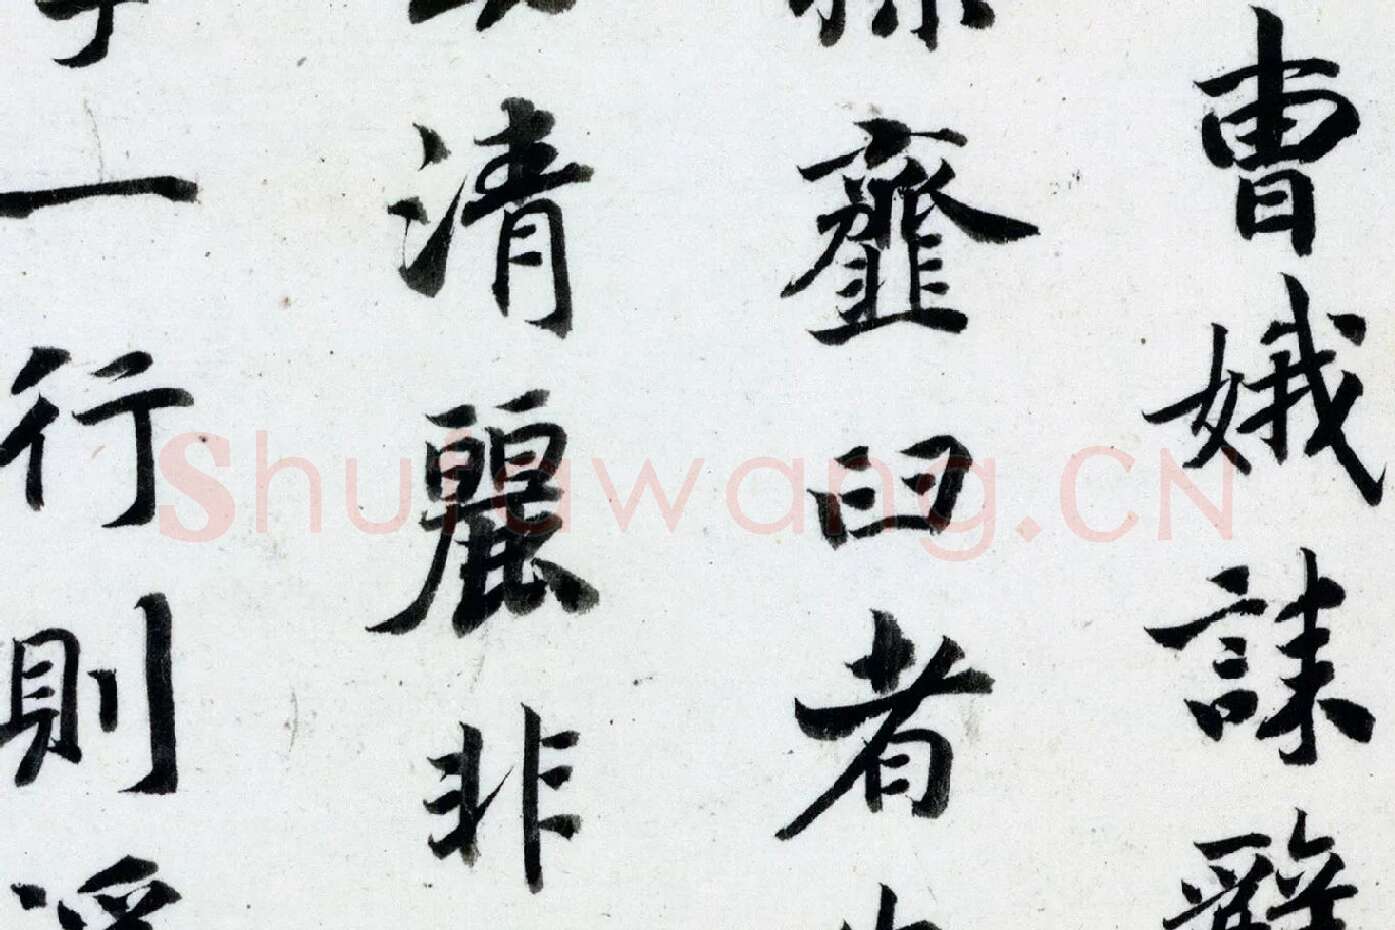 曹娥誄辭
齏臼者
清麗非
一行則
Shufawang.CN